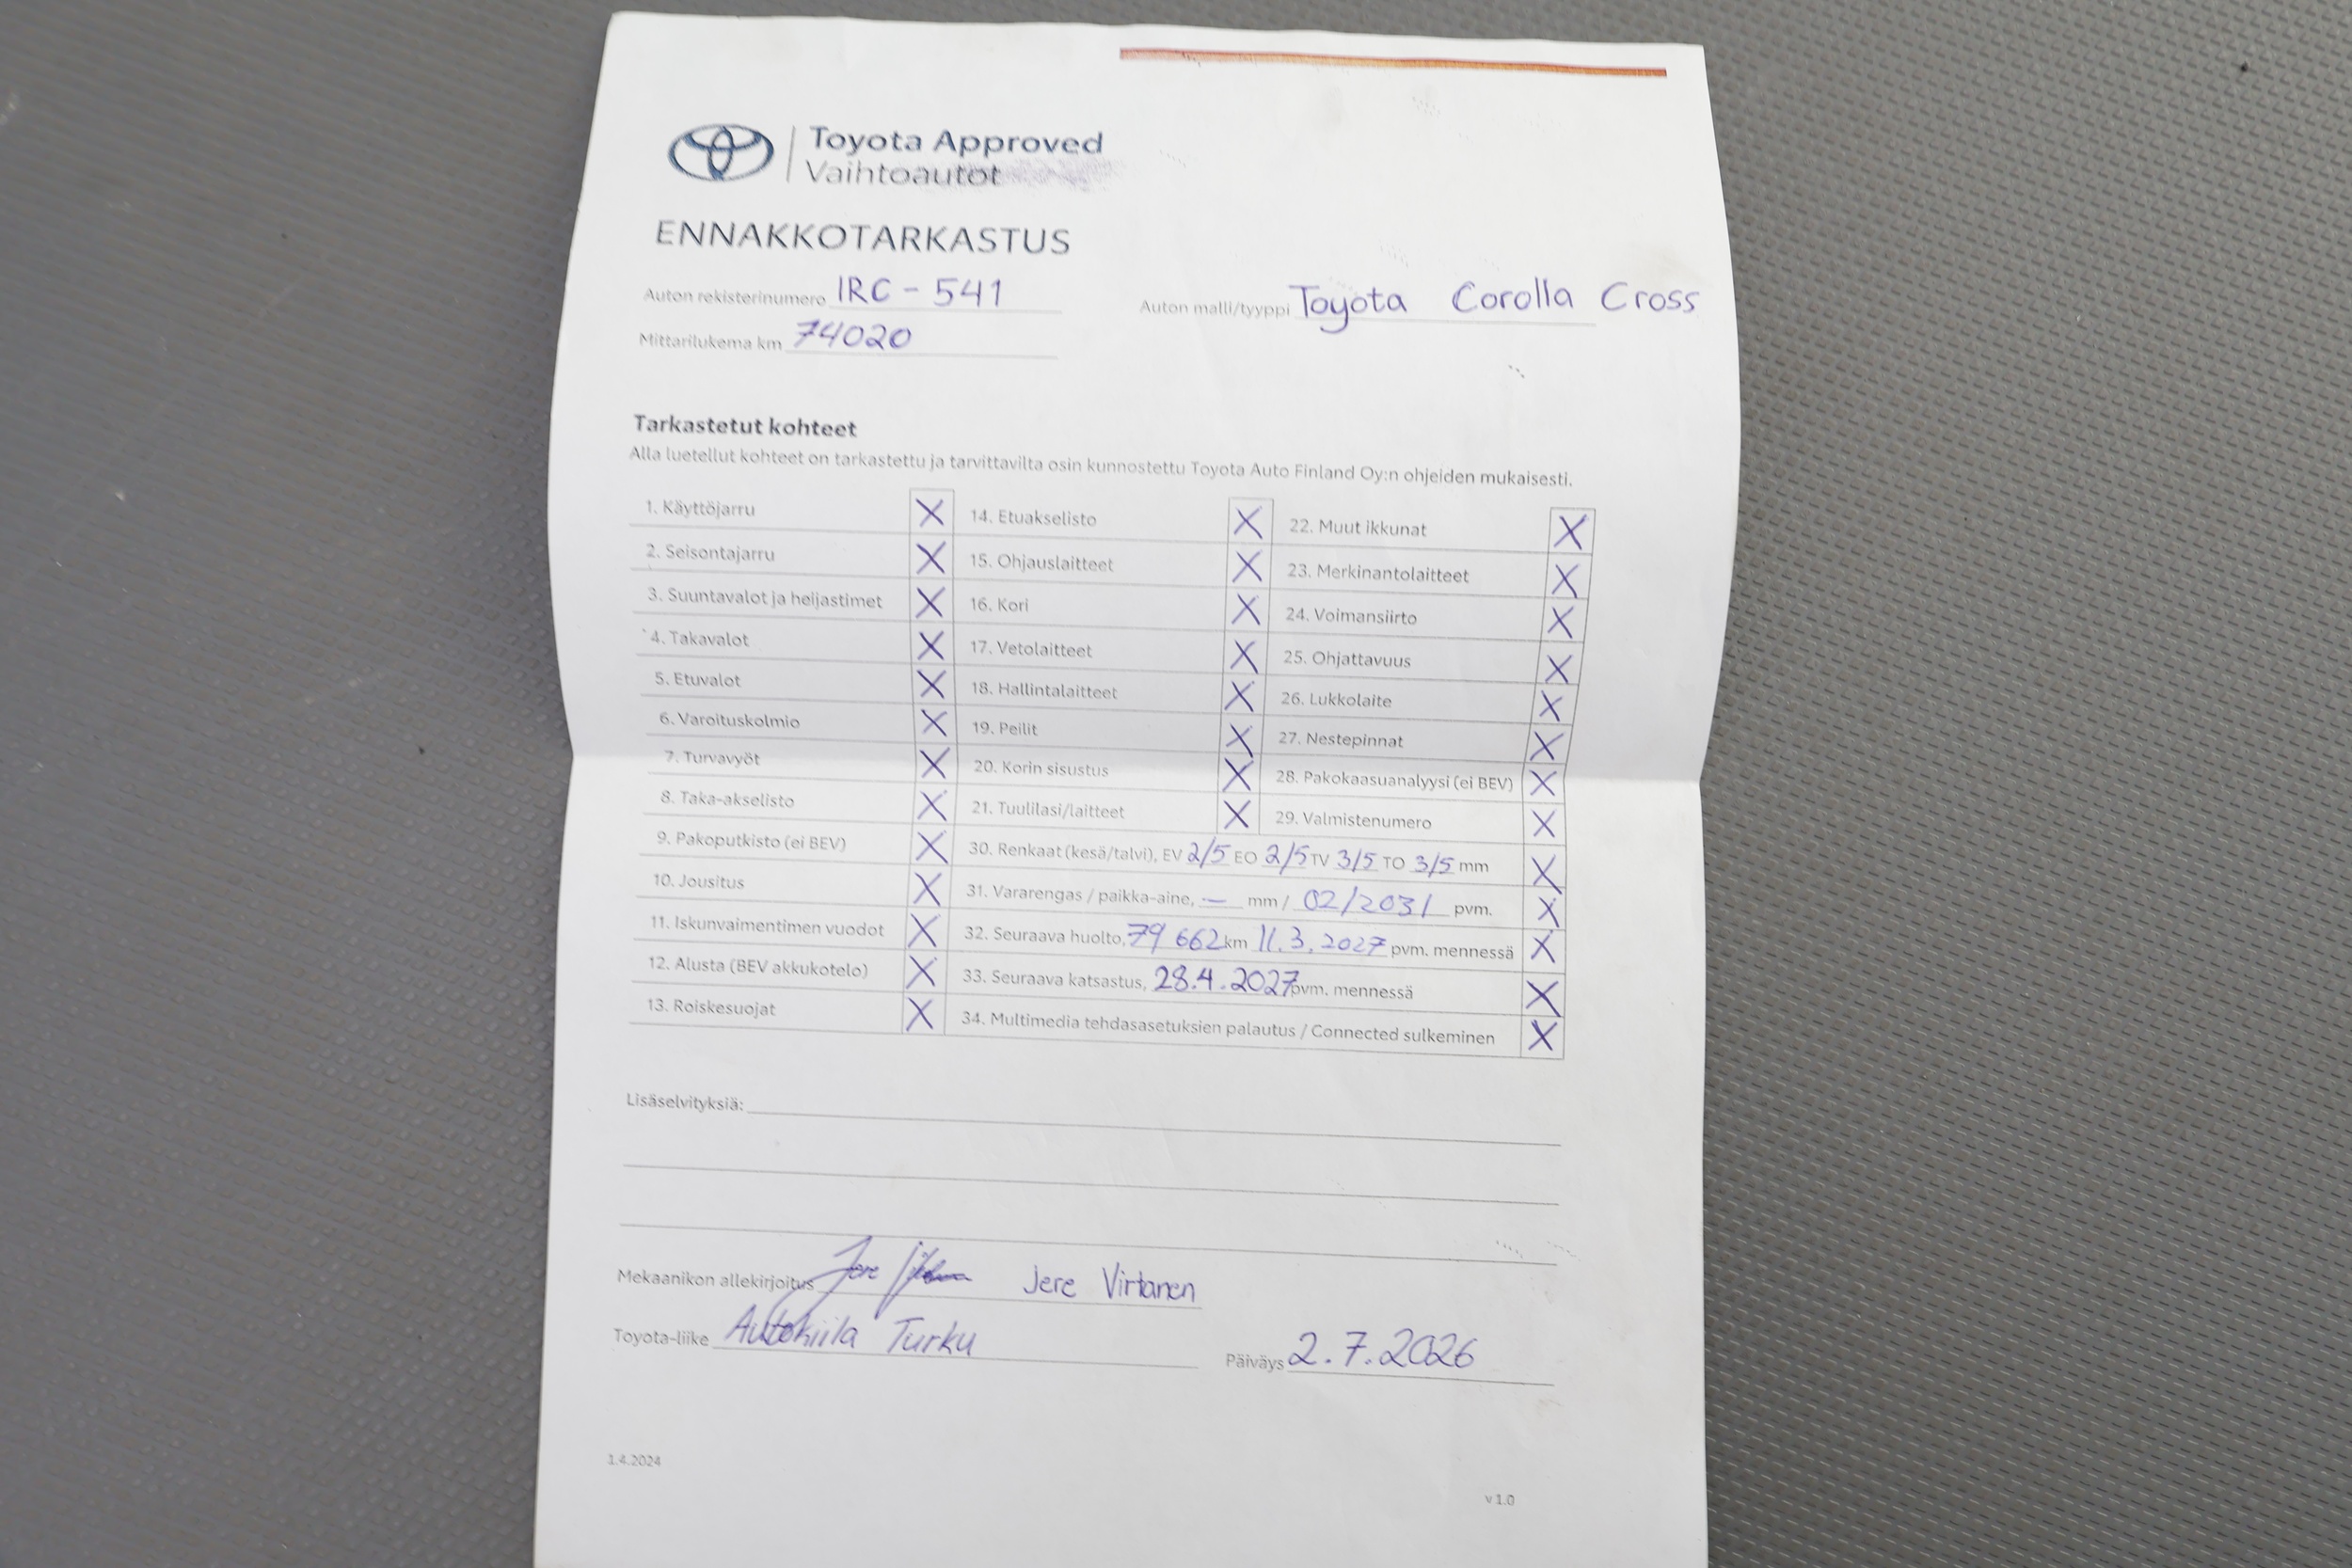 Toyota Approved
Vaihtoautot
ENNAKKOTARKASTUS
Auton rekisterinumero IRC - 541
Auton malli/tyyppi Toyota Corolla Cross
Mittarilukema km 74020
Tarkastetut kohteet
Alla luetellut kohteet on tarkastettu ja tarvittavilta osin kunnostettu Toyota Auto Finland Oy:n ohjeiden mukaisesti.
1. Käyttöjarru X
2. Seisontajarru X
3. Suuntavalot ja heijastimet X
4. Takavalot X
5. Etuvalot X
6. Varoituskolmio X
7. Turvavyöt X
8. Taka-akselisto X
9. Pakoputkisto (ei BEV) X
10. Jousitus X
11. Iskunvaimentimen vuodot X
12. Alusta (BEV akkukotelo) X
13. Roiskesuojat X
14. Etuakselisto X
15. Ohjauslaitteet X
16. Kori X
17. Vetolaitteet X
18. Hallintalaitteet X
19. Peilit X
20. Korin sisustus X
21. Tuulilasi/laitteet X
22. Muut ikkunat X
23. Merkinantolaitteet X
24. Voimansiirto X
25. Ohjattavuus X
26. Lukkolaite X
27. Nestepinnat X
28. Pakokaasuanalyysi (ei BEV) X
29. Valmistenumero X
30. Renkaat (kesä/talvi), EV 2/5 EO 2/5 TV 3/5 TO 3/5 mm X
31. Vararengas / paikka-aine, — mm / 02/2031 pvm. X
32. Seuraava huolto, 79 662 km 11.3.2027 pvm. mennessä X
33. Seuraava katsastus, 28.4.2027 pvm. mennessä X
34. Multimedia tehdasasetuksien palautus / Connected sulkeminen X
Lisäselvityksiä:
Mekaanikon allekirjoitus Jere Jere Virtanen
Toyota-liike Autokiila Turku
Päiväys 2.7.2026
1.4.2024
v 1.0